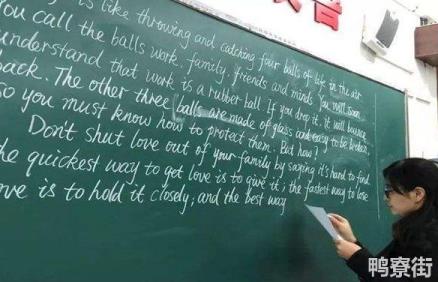 is like throwing and catching four balls of life in the air
you call the balls work, family, friends and minds. You will soon
understand that work is a rubber ball. If you drop it, it will bounce
back. The other three balls are made of glass and easy to be broken.
So you must know how to protect them. But how?
Dont shut love out of your family by saying it's hard to find
the quickest way to get love is to give it; the fastest way to lose
love is to hold it closely; and the best way
鸭寮街